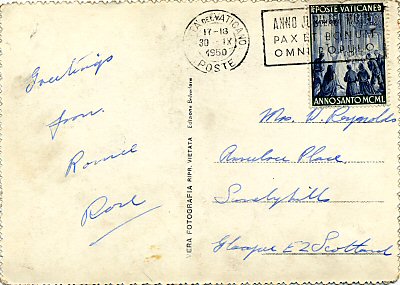 CITTÀ DEL VATICANO
17-18
30 · IX
1950
POSTE
ANNO
PAX ET BONUM
OMNI POPULO
POSTE VATICANE
ANNO SANTO MCML
Greetings
from
Ronnie
Rose
VERA FOTOGRAFIA RIPR. VIETATA Edizione Belvedere
Mrs. W. Reynolds
Place,
Sandyhills
Glasgow E2 Scotland